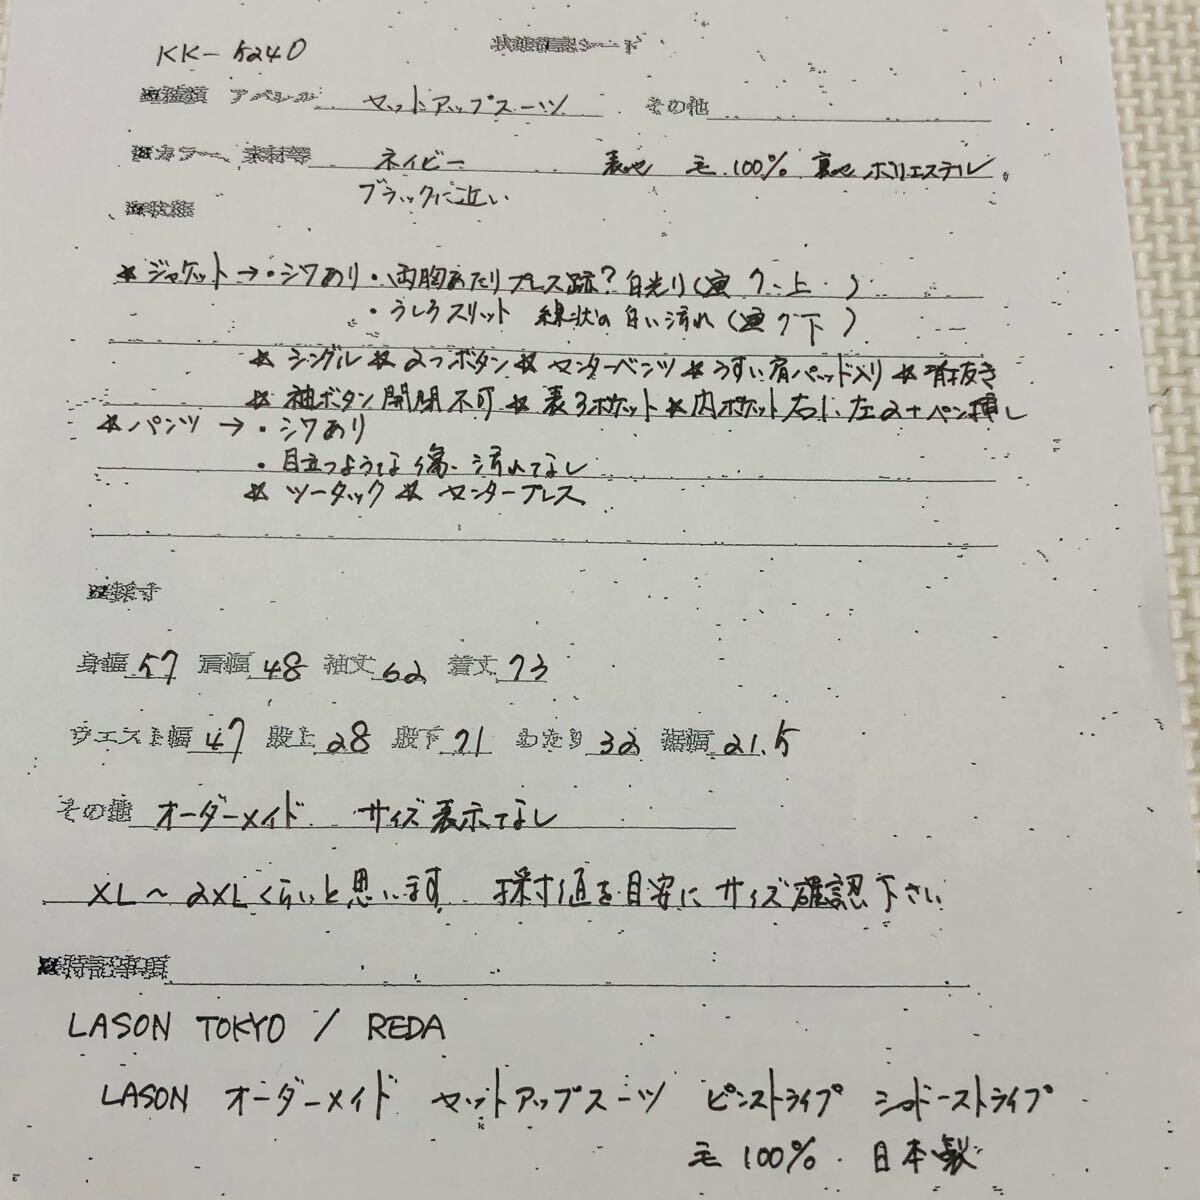 KK-5240 状態確認シート
アパレル セットアップスーツ その他
カラー、素材等 ネイビー 表地 毛 100% 裏地 ポリエステル
ブラックに近い
※状態
☆ジャケット→・シワあり・両胸あたりプレス跡?白光り(
・うしろスリット 線状の白い汚れ(
☆シングル☆2つボタン☆センターベンツ☆うすい肩パッド入り☆背抜き
☆袖ボタン開閉不可☆表3ポケット☆内ポケット右1、左2+ペン挿し
☆パンツ→・シワあり
・目立つような傷、汚れなし
☆ツータック☆センタープレス
※採寸
身幅 57 肩幅 48 袖丈 62 着丈 73
ウエスト幅 47 股上 28 股下 71 わたり 32 裾幅 21.5
その他 オーダーメイド サイズ表示なし
XL~2XLくらいと思います 採寸値を目安にサイズ確認下さい
※特記事項
LASON TOKYO / REDA
LASON オーダーメイド セットアップスーツ ピンストライプ シャドーストライプ
毛 100% 日本製